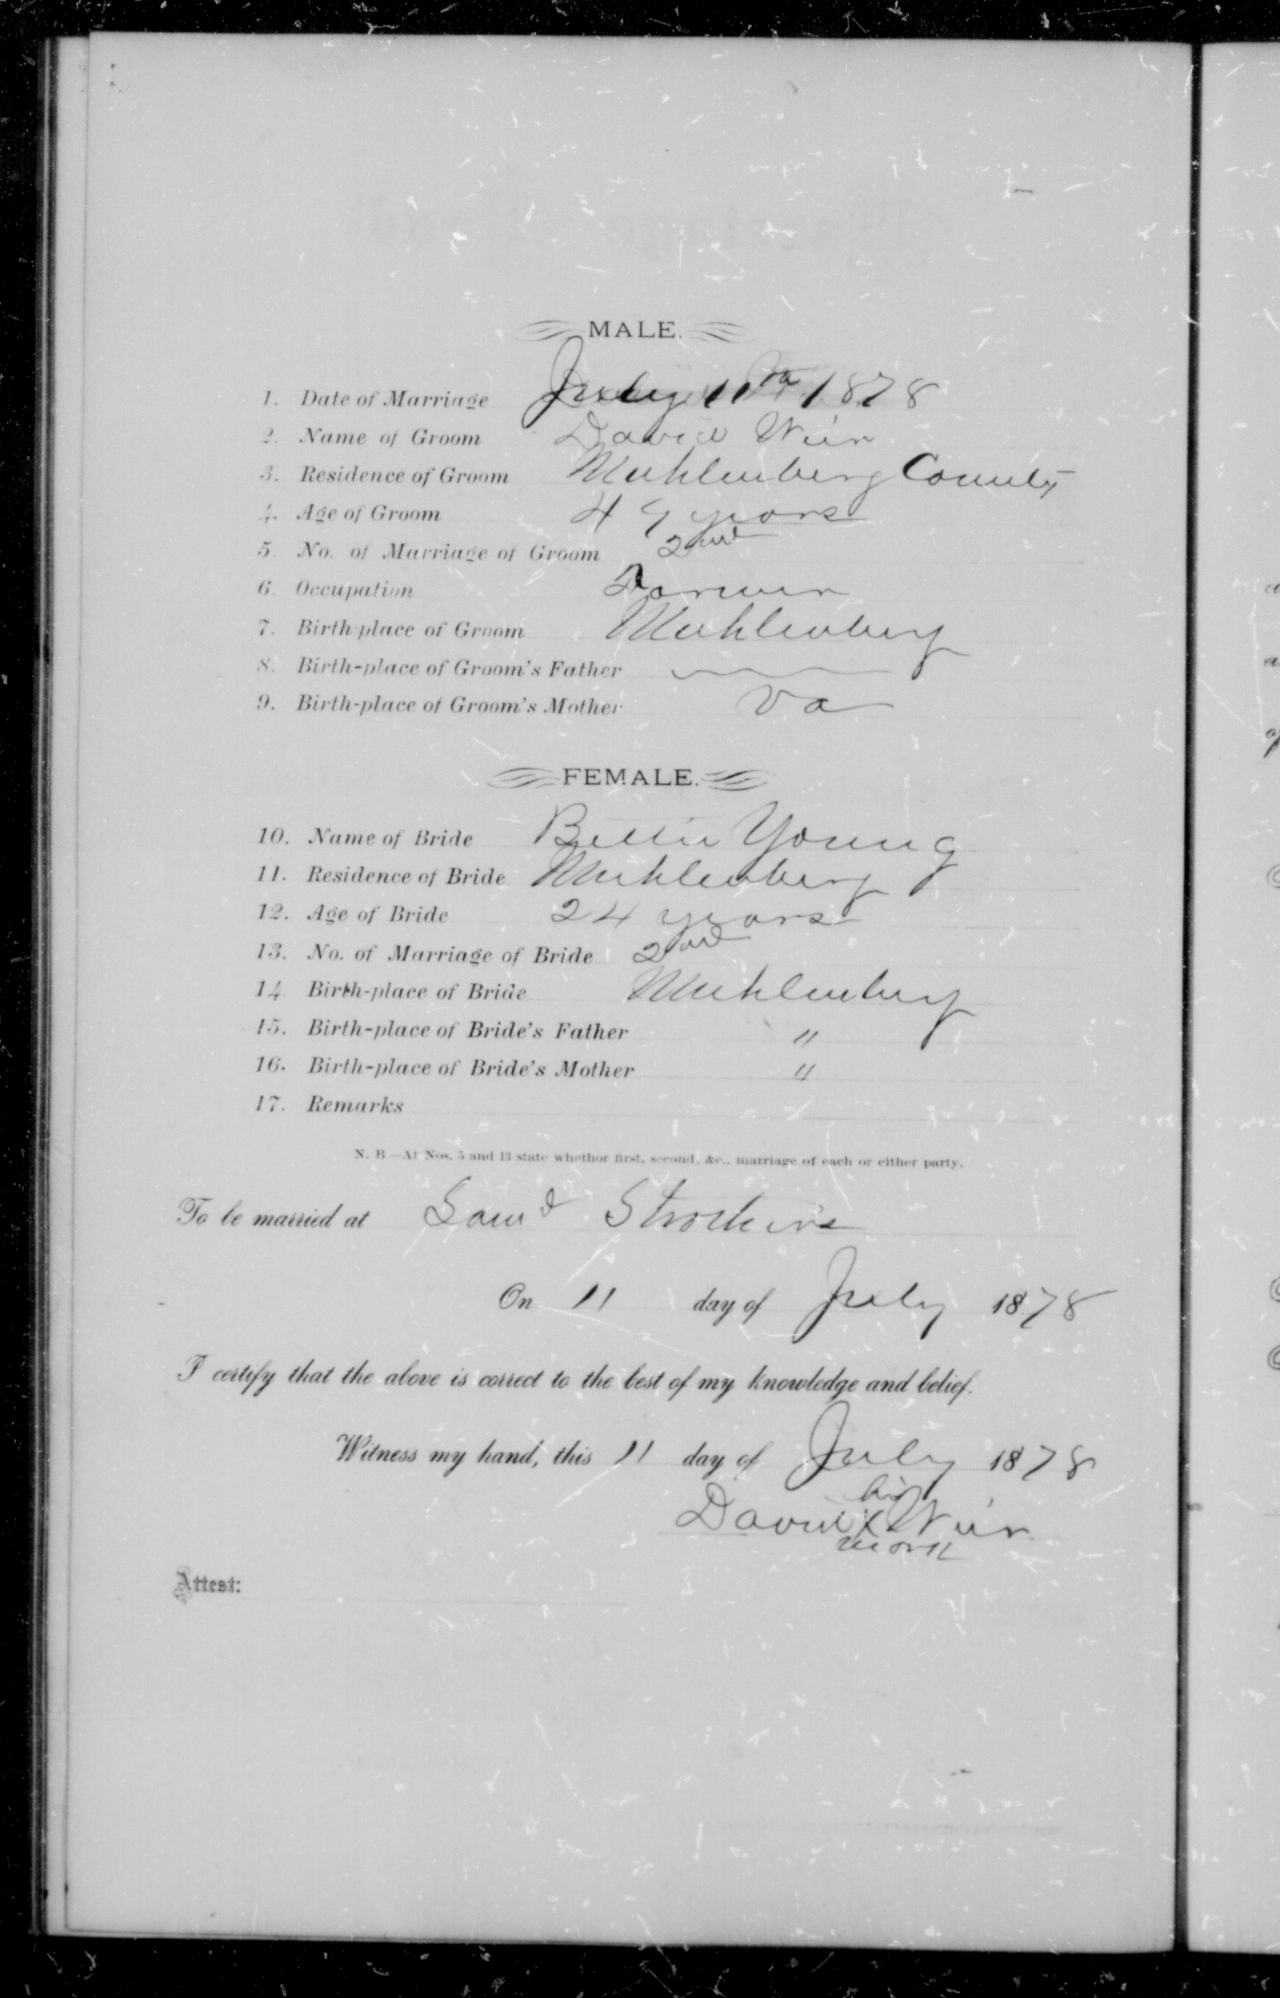 MALE.
1. Date of Marriage July 11th 1878
2. Name of Groom David Wier
3. Residence of Groom Muhlenberg County
4. Age of Groom 49 years
5. No. of Marriage of Groom 2nd
6. Occupation Farmer
7. Birth-place of Groom Muhlenberg
8. Birth-place of Groom's Father
9. Birth-place of Groom's Mother Va
FEMALE.
10. Name of Bride Bettie Young
11. Residence of Bride Muhlenberg
12. Age of Bride 24 years
13. No. of Marriage of Bride 2nd
14. Birth-place of Bride Muhlenberg
15. Birth-place of Bride's Father "
16. Birth-place of Bride's Mother "
17. Remarks
N. B.—At Nos. 5 and 13 state whether first, second, &c., marriage of each or either party.
To be married at
On 11 day of July 1878
I certify that the above is correct to the best of my knowledge and belief.
Witness my hand, this 11 day of July 1878
his
David X Wier
mark
Attest: